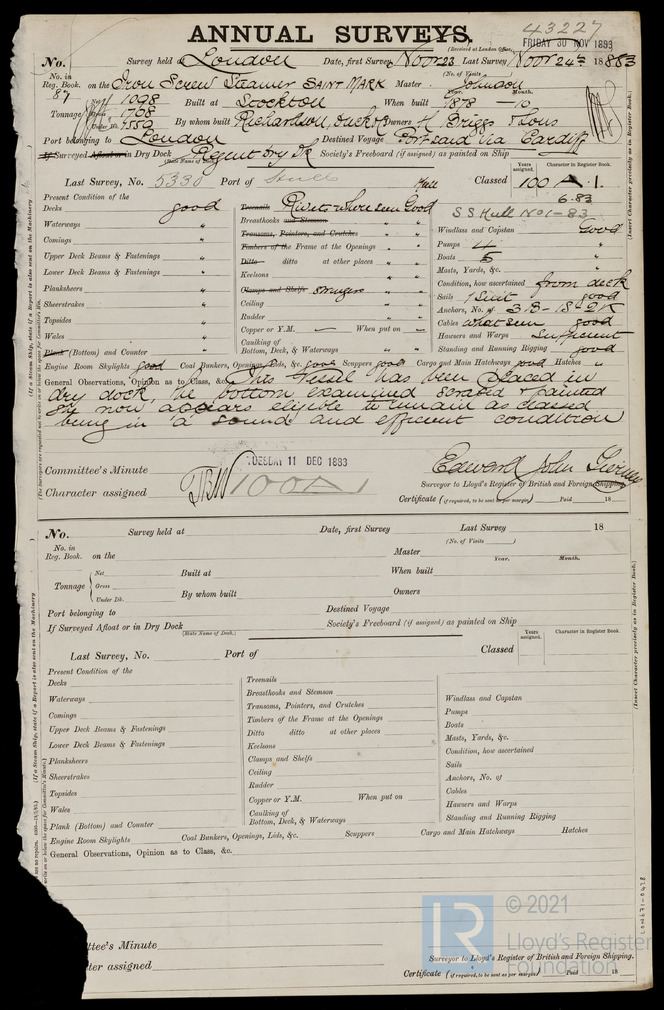 43227
ANNUAL SURVEYS.
(Received at London Office, FRIDAY 30 NOV 1883
No. Survey held at London Date, first Survey Novr 23 Last Survey Novr 24th 1883
No. in Reg. Book. 87 on the Iron Screw Steamer SAINT MARK Master Johnson
(No. of Visits)
Year. Month.
Tonnage Net 1098 Built at Stockton When built 1878 - 10
Gross 1708
Under Dk. 1559 By whom built Richardson, Duck & Co Owners H Briggs & Sons
Port belonging to London Destined Voyage Port Said via Cardiff
If Surveyed Afloat or in Dry Dock Regent Dry Dk Society's Freeboard (if assigned) as painted on Ship
(State Name of Dock.)
Last Survey, No. 5330 Port of Hull Hull Classed Years assigned. 100 Character in Register Book. A.1.
6.83
SS Hull No1-83
Present Condition of the
Decks good Treenails Rivets where seen Good
Waterways " Breasthooks and Stemson " " Windlass and Capstan Good
Comings " Transoms, Pointers, and Crutches " " Pumps 4 "
Upper Deck Beams & Fastenings " Timbers of the Frame at the Openings " " Boats 5 "
Lower Deck Beams & Fastenings " Ditto ditto at other places " " Masts, Yards, &c. "
Planksheers " Keelsons " " Condition, how ascertained from deck
Sheerstrakes " Clamps and Shelfs Stringers " " Sails 1 Suit good
Topsides " Ceiling " " Anchors, No. of 3B-1S-2K
Wales " Rudder " " Cables what seen good
Plank (Bottom) and Counter " Copper or Y.M. — When put on — Hawsers and Warps Sufficient
Caulking of Bottom, Deck, & Waterways " " Standing and Running Rigging good
Engine Room Skylights good Coal Bunkers, Openings, Lids, &c. good Scuppers good Cargo and Main Hatchways good Hatches "
General Observations, Opinion as to Class, &c. This Vessel has been placed in
dry dock, the bottom examined scraped & painted
She now appears eligible to remain as classed
being in a sound and efficient condition
Committee's Minute TUESDAY 11 DEC 1883
Edward John Tierney
Character assigned 100A1
Surveyor to Lloyd's Register of British and Foreign Shipping.
Certificate (if required, to be sent as per margin) Paid 18
(If a Steam Ship, state if a Report is also sent on the Machinery
(Insert Character precisely as in Register Book.)
No. Survey held at Date, first Survey Last Survey 18
(No. of Visits )
No. in Reg. Book. on the Master
Year. Month.
Tonnage Net Built at When built
Gross
Under Dk. By whom built Owners
Port belonging to Destined Voyage
If Surveyed Afloat or in Dry Dock Society's Freeboard (if assigned) as painted on Ship
(State Name of Dock.)
Last Survey, No. Port of Classed Years assigned. Character in Register Book.
Present Condition of the
Decks Treenails
Waterways Breasthooks and Stemson Windlass and Capstan
Comings Transoms, Pointers, and Crutches Pumps
Upper Deck Beams & Fastenings Timbers of the Frame at the Openings Boats
Lower Deck Beams & Fastenings Ditto ditto at other places Masts, Yards, &c.
Planksheers Keelsons Condition, how ascertained
Sheerstrakes Clamps and Shelfs Sails
Topsides Ceiling Anchors, No. of
Wales Rudder Cables
Plank (Bottom) and Counter Copper or Y.M. When put on Hawsers and Warps
Caulking of Bottom, Deck, & Waterways Standing and Running Rigging
Engine Room Skylights Coal Bunkers, Openings, Lids, &c. Scuppers Cargo and Main Hatchways Hatches
General Observations, Opinion as to Class, &c.
(If a Steam Ship, state if a Report is also sent on the Machinery
(Insert Character precisely as in Register Book.)
ttee's Minute
ter assigned
Surveyor to Lloyd's Register of British and Foreign Shipping.
Certificate (if required, to be sent as per margin) Paid 18
LR
© 2021
Lloyd's Register
Foundation